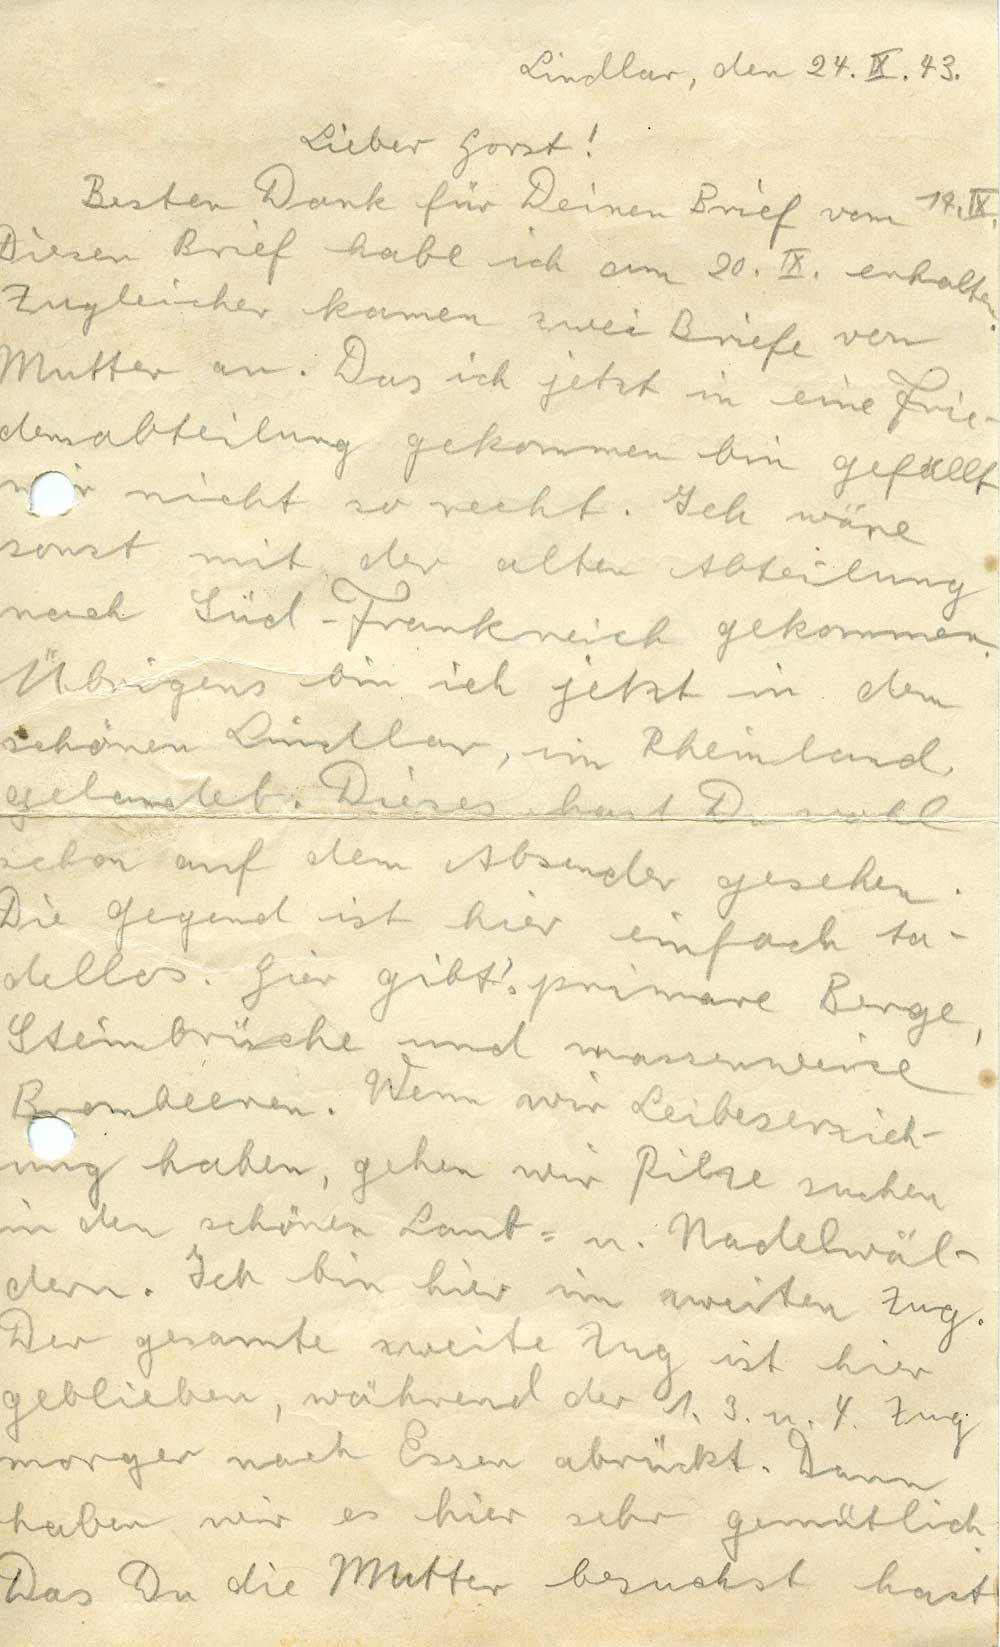 Lindlar, den 24. IX. 43.
Lieber Horst!
Besten Dank für Deinen Brief vom 17. IX.
Diesen Brief habe ich am 20. IX. erhalten.
Zugleicher kamen zwei Briefe von
Mutter an. Das ich jetzt in eine Frie-
densabteilung gekommen bin gefällt
mir nicht so recht. Ich wäre
sonst mit der alten Abteilung
nach Süd-Frankreich gekommen.
Übrigens bin ich jetzt in dem
schönen Lindlar, im Rheinland,
gelandet. Dieses hast Du wohl
schon auf dem Absender gesehen.
Die Gegend ist hier einfach ta-
dellos. Hier gibt's primare Berge,
Steinbrüche und massenweise
Brombeeren. Wenn wir Leibeserzieh-
ung haben, gehen wir Pilze suchen
in den schönen Laub= u. Nadelwäl-
dern. Ich bin hier im zweiten Zug.
Der gesamte zweite Zug ist hier
geblieben, während der 1. 3. u. 4. Zug
morgen nach Essen abrückt. Dann
haben wir es hier sehr gemütlich.
Das Du die Mutter besuchst hast